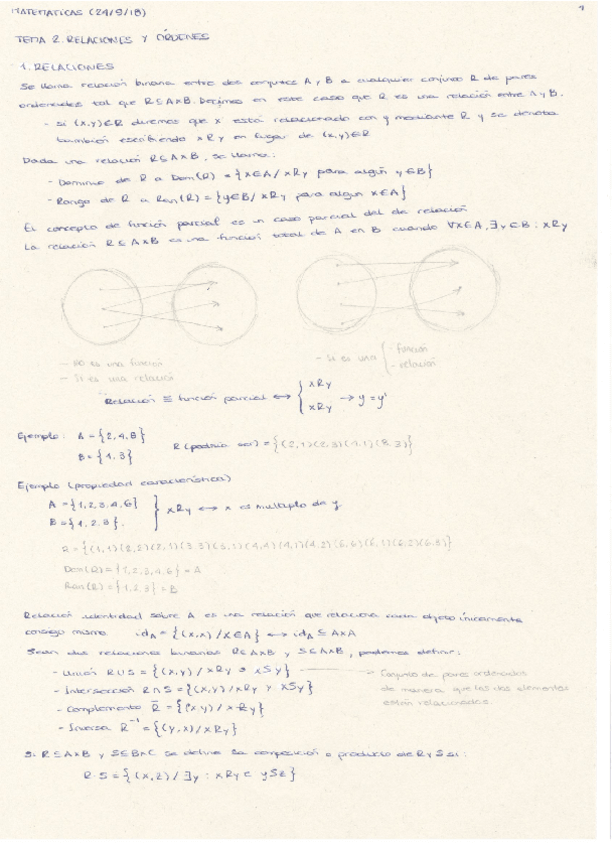 MATEMATICAS (24/9/18)
1
TEMA 2. RELACIONES Y ÓRDENES
1. RELACIONES
Se llama relación binaria entre dos conjuntos A y B a cualquier conjunto R de pares
ordenados tal que R⊆A×B. Decimos en este caso que R es una relación entre A y B.
- si (x,y)∈R diremos que x está relacionado con y mediante R y se denota
también escribiendo xRy en lugar de (x,y)∈R
Dada una relación R⊆A×B, se llama:
- Dominio de R a Dom(R) = {x∈A / xRy para algún y∈B}
- Rango de R a Ran(R) = {y∈B / xRy para algún x∈A}
El concepto de función parcial es un caso parcial del de relación
La relación R⊆A×B es una función total de A en B cuando ∀x∈A, ∃y∈B : xRy
- No es una función
- Si es una relación
- Si es una { - función
- relación
Relación ≡ función parcial ↔ { xRy
xRy → y = y'
Ejemplo: A = {2,4,8}
B = {1,3}
R (podría ser) = {(2,1)(2,3)(4,1)(8,3)}
Ejemplo (propiedad característica)
A = {1,2,3,4,6}
B = {1,2,3}.
} xRy ↔ x es múltiplo de y
R = {(1,1)(2,2)(2,1)(3,3)(3,1)(4,4)(4,1)(4,2)(6,6)(6,1)(6,2)(6,3)}
Dom(R) = {1,2,3,4,6} = A
Ran(R) = {1,2,3} = B
Relación identidad sobre A es una relación que relaciona cada objeto únicamente
consigo mismo id_A = {(x,x) / x∈A} ↔ id_A ⊆ A×A
Sean dos relaciones binarias R⊆A×B y S⊆A×B, podemos definir:
- Unión R∪S = {(x,y) / xRy o xSy}
- Conjunto de pares ordenados
de manera que los dos elementos
están relacionados.
- Intersección R∩S = {(x,y) / xRy y xSy}
- Complemento R̄ = {(x,y) / xRy}
- Inversa R⁻¹ = {(y,x) / xRy}
Si R⊆A×B y S⊆B×C se define la composición o producto de R y S a:
R·S = {(x,z) / ∃y : xRy e ySz}